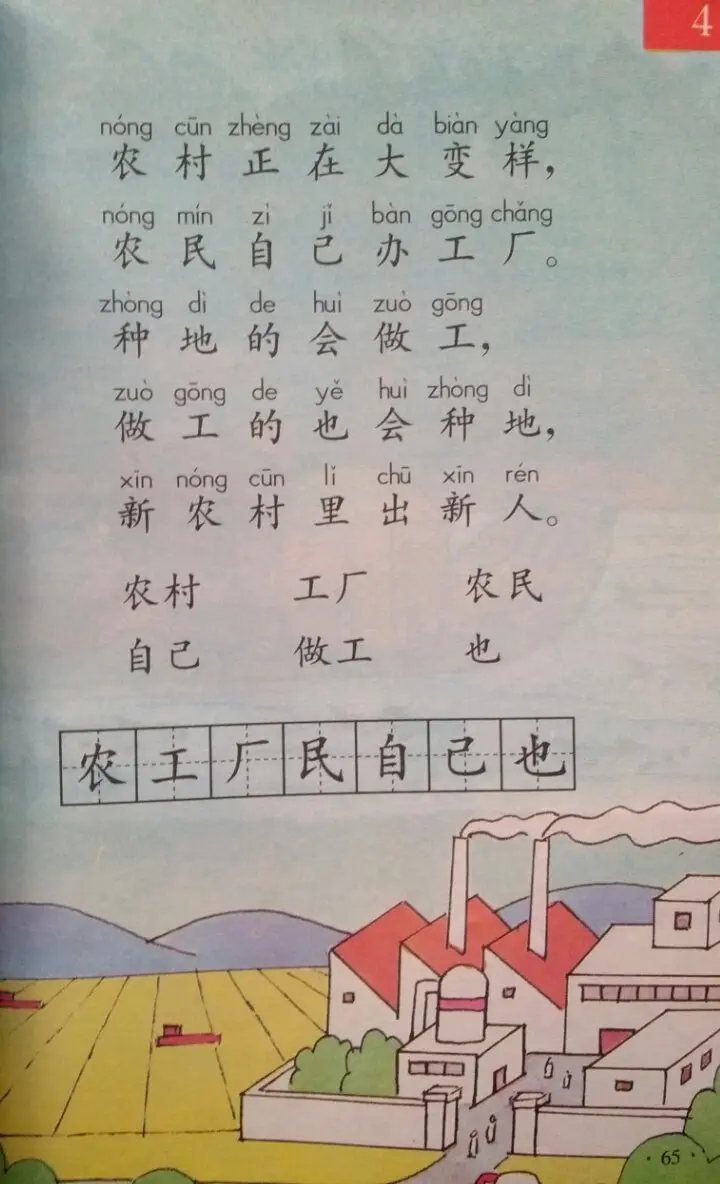 4
nóng cūn zhèng zài dà biàn yàng
农村正在大变样，
nóng mín zì jǐ bàn gōng chǎng
农民自己办工厂。
zhòng dì de huì zuò gōng
种地的会做工，
zuò gōng de yě huì zhòng dì
做工的也会种地，
xīn nóng cūn lǐ chū xīn rén
新农村里出新人。
农村 工厂 农民
自己 做工 也
农工厂民自己也
·65·